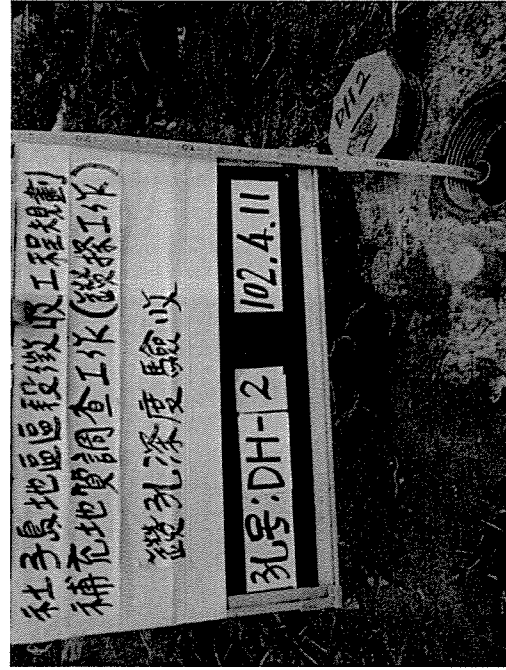 社子島地區區段徵收工程規劃
補充地質調查工作(鑽探工作)
鑽孔深度驗收
孔号:DH-2
102.4.11
DH2